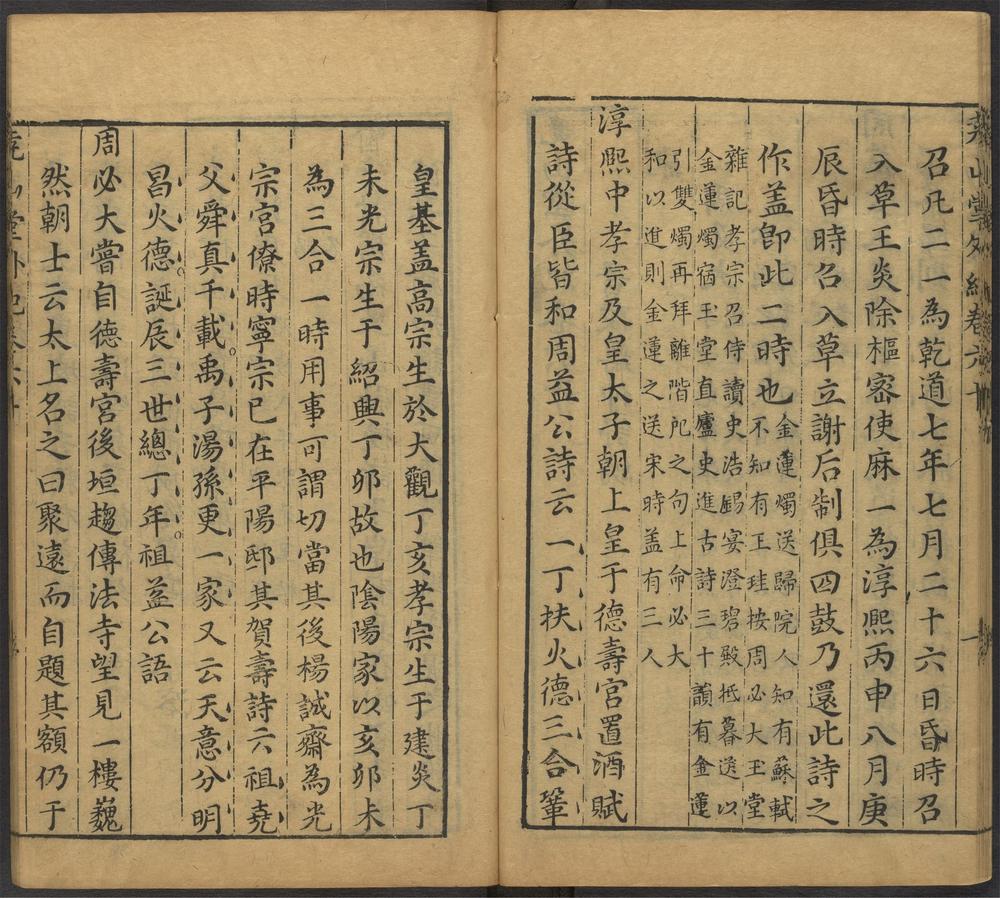 堯山堂外紀卷六十
召凡二一為乾道七年七月二十六日昏時召
入草王炎除樞密使麻一為淳熙丙申八月庚
辰昏時召入草立謝后制俱四鼓乃還此詩之
作盖卽此二時也金蓮燭送歸院人知有蘇軾
不知有王珪按周必大玉堂
雜記孝宗召侍讀史浩錫宴澄碧殿抵暮送以
金蓮燭宿玉堂直廬史進古詩三十韻有金蓮
引雙燭再拜離階戺之句上命必大
和以進則金蓮之送宋時盖有三人
淳熙中孝宗及皇太子朝上皇于德壽宮置酒賦
詩從臣皆和周益公詩云一丁扶火德三合鞏
皇基盖高宗生於大觀丁亥孝宗生于建炎丁
未光宗生于紹興丁卯故也陰陽家以亥卯未
為三合一時用事可謂切當其後楊誠齋為光
宗宮僚時寧宗已在平陽邸其賀壽詩云祖堯
父舜真千載禹子湯孫更一家又云天意分明
昌火德誕辰三世總丁年祖益公語
周必大嘗自德壽宮後垣趨傳法寺望見一樓巍
然朝士云太上名之曰聚遠而自題其額仍于
堯山堂外紀卷六十